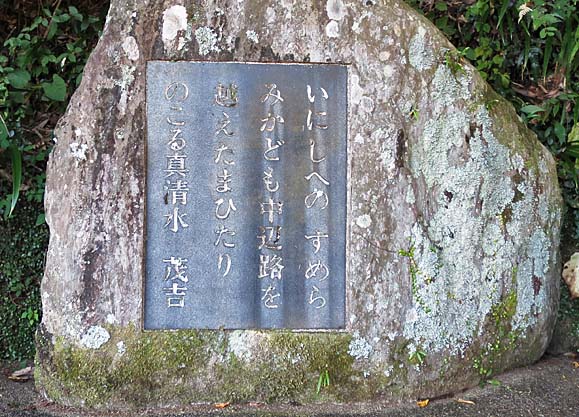 いにしへの すめら
みかども中辺路を
越えたまひたり
のこる真清水 茂吉